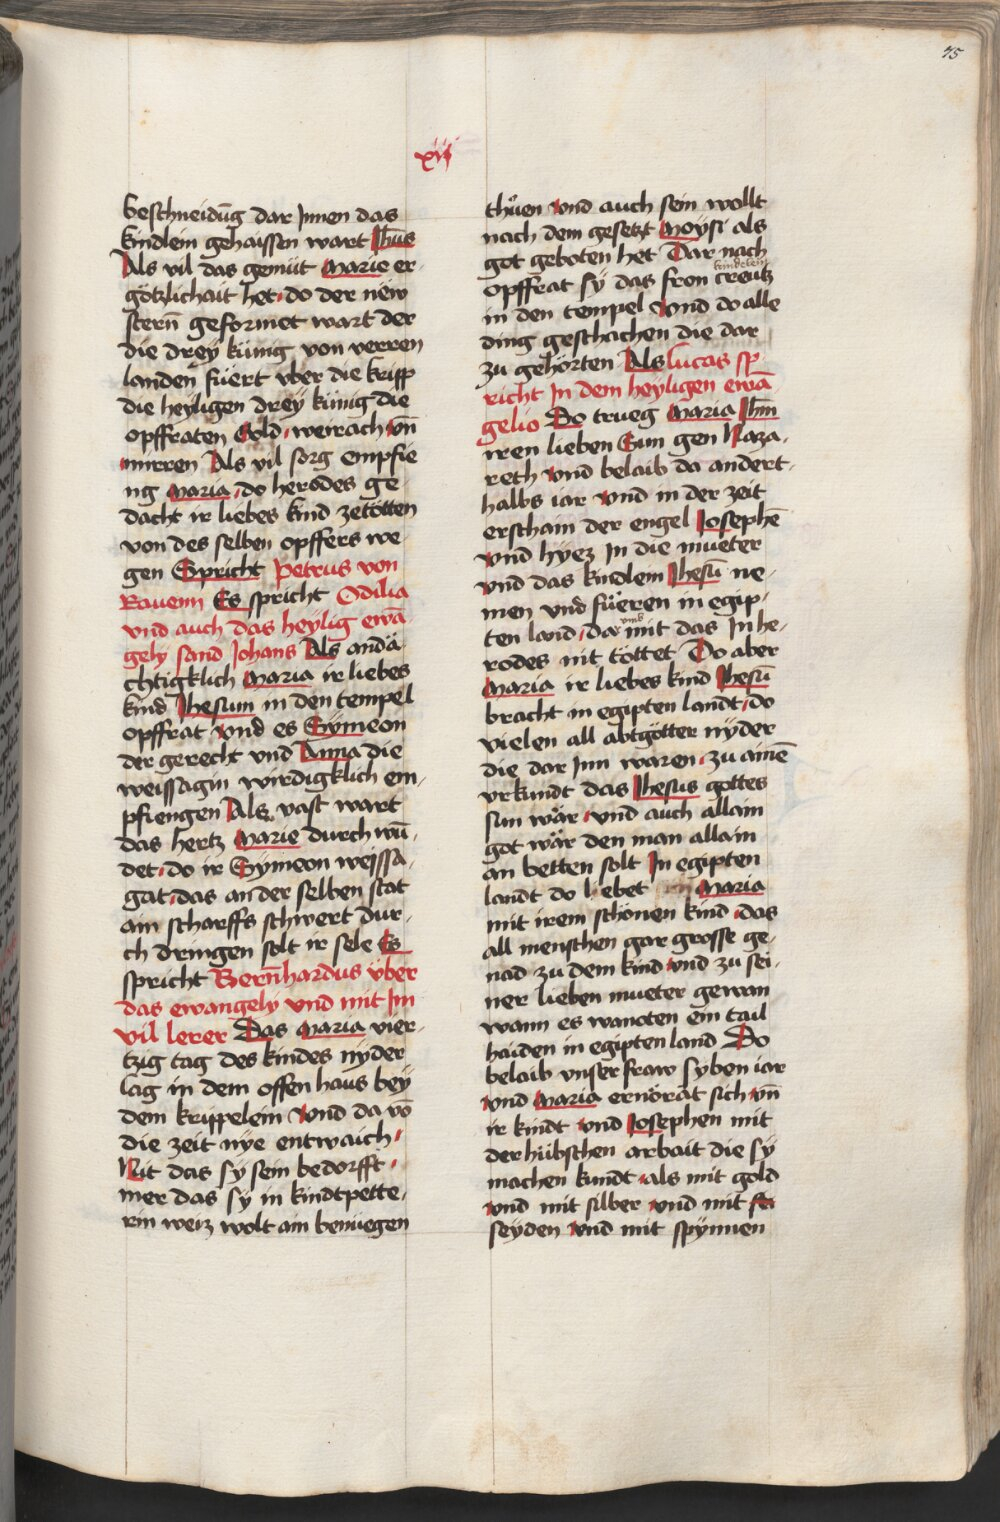 75
xij
beschneidūg dar Jnnen das
kindlein gehaissen wart Jhūs
Als vil das gemüt Marie er-
götzlichait het, do der new
stern̄ geformet wart der
die dreÿ künig von verren
landen füert vber die kripp
die heyligen dreÿ künig die
opffraten Gold, weirach vn̄
mirren Als vil sorg empfie
ng Maria, do herodes ge
dacht ir liebes kind zetötten
von des selben opffers we
gen Spricht Petrus von
Rauenn Es spricht Odilia
vnd auch das heylig ewā
gely sand Johans Als andä-
chtigklich Maria ir liebes
kind Jhesum in den tempel
opffrat vnd es Sÿmeon
der gerecht vnd Anna die
weissagin wirdigklich em-
pfiengen Als vast wart
das hertz Marie durch wū-
det, do ir Sÿmeon weissa-
gat, das an der selben stat
ain scharffs schwert dur-
ch dringen solt ir sele Es
spricht Bern̄hardus vber
das ewangely vnd mit Jm
vil lerer Das Maria vier-
tzig tag des kindes nÿder
lag in dem offen haus beÿ
dem krippelein vnd da vō
die zeit nÿe entwaich,
Nit das sÿ sein bedorfft,
mer das sÿ in kindtpette-
rin weiz wolt ain benüegen
thůen vnd auch sein wollt
nach dem gesetzt Moÿsi als
got geboten het Dar nach
kindelein
opffrat sÿ das fron creutz
in den tempel vnd do alle
ding geschachen die dar
zu gehörten Als lucas sp
richt Jn dem heyligen ewā
gelio Do trueg Maria Jhm̄
iren lieben Sun gen Naza-
reth vnd belaib da andert-
halbs iar vnd in der zeit
erschain der engel Josephē
vnd hÿez Jn die mueter
vnd das kindlem Jhesū ne-
men vnd füeren in egip-
ten land, dar vmb mit das Jn he-
rodes nit töttet Do aber
Maria ir liebes kind Jhesū
bracht in egipten landt, do
vielen all abtgötter nÿder
die dar Jnn waren, zu ainē
vrkundt das Jhesus gottes
sun wär, vnd auch allain
got wär den man allain
an betten solt Jn egipten
landt do liebet Maria
mit irem schönen kind, das
all menschen gar grosse ge-
nad zu dem kind vnd zu sei-
ner lieben mueter gewan
wann es wanoten ein tail
haiden in egipten land Do
belaib vnser fraw sÿben iar
vnd Maria ernörat sich vn̄
ir kindt vnd Josephen mit
der hübschen arbait die sÿ
machen kundt, als mit gold
vnd mit silber vnd mit
seyden vnd mit spÿnnen